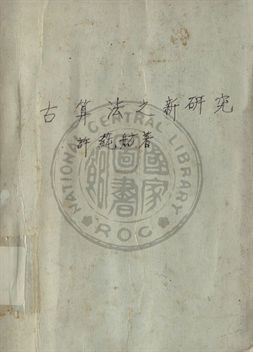 古算法之新研究
許蒓舫著
NATIONAL CENTRAL LIBRARY
國家圖書館
ROC